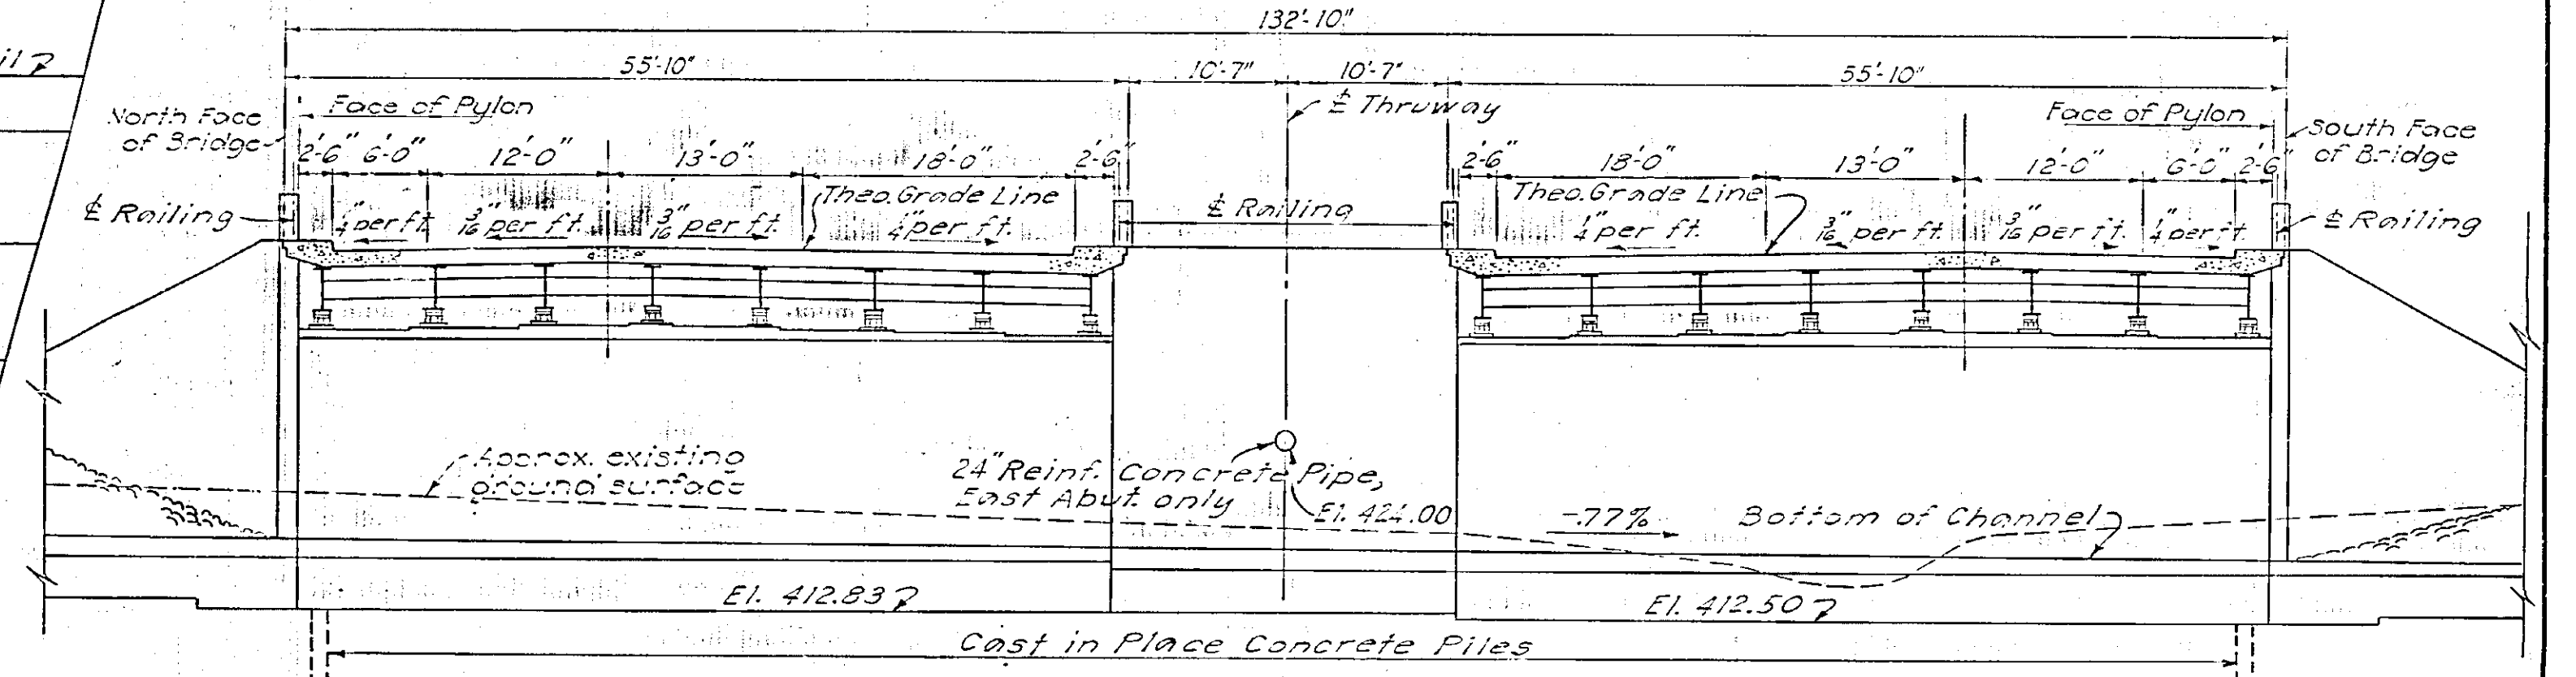 132'-10"
55'-10" 10'-7" 10'-7" 55'-10"
North Face
of Bridge
Face of Pylon
℄ Thruway
Face of Pylon
South Face
of Bridge
2'-6" 6'-0" 12'-0" 13'-0" 18'-0" 2'-6"
2'-6" 18'-0" 13'-0" 12'-0" 6'-0" 2'-6"
Theo. Grade Line
Theo. Grade Line
℄ Railing
1/4" per ft. 3/16" per ft. 3/16" per ft. 1/4" per ft.
℄ Railing
1/4" per ft. 3/16" per ft. 3/16" per ft. 1/4" per ft.
℄ Railing
Approx. existing
ground surface
24" Reinf. Concrete Pipe,
East Abut. only
El. 424.00
-.77%
Bottom of Channel
El. 412.83
El. 412.50
Cast in Place Concrete Piles